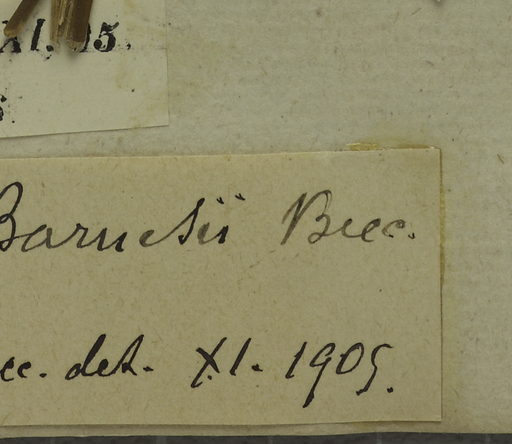 XI, 05.
Barnesii Becc.
cc. det. XI. 1905.